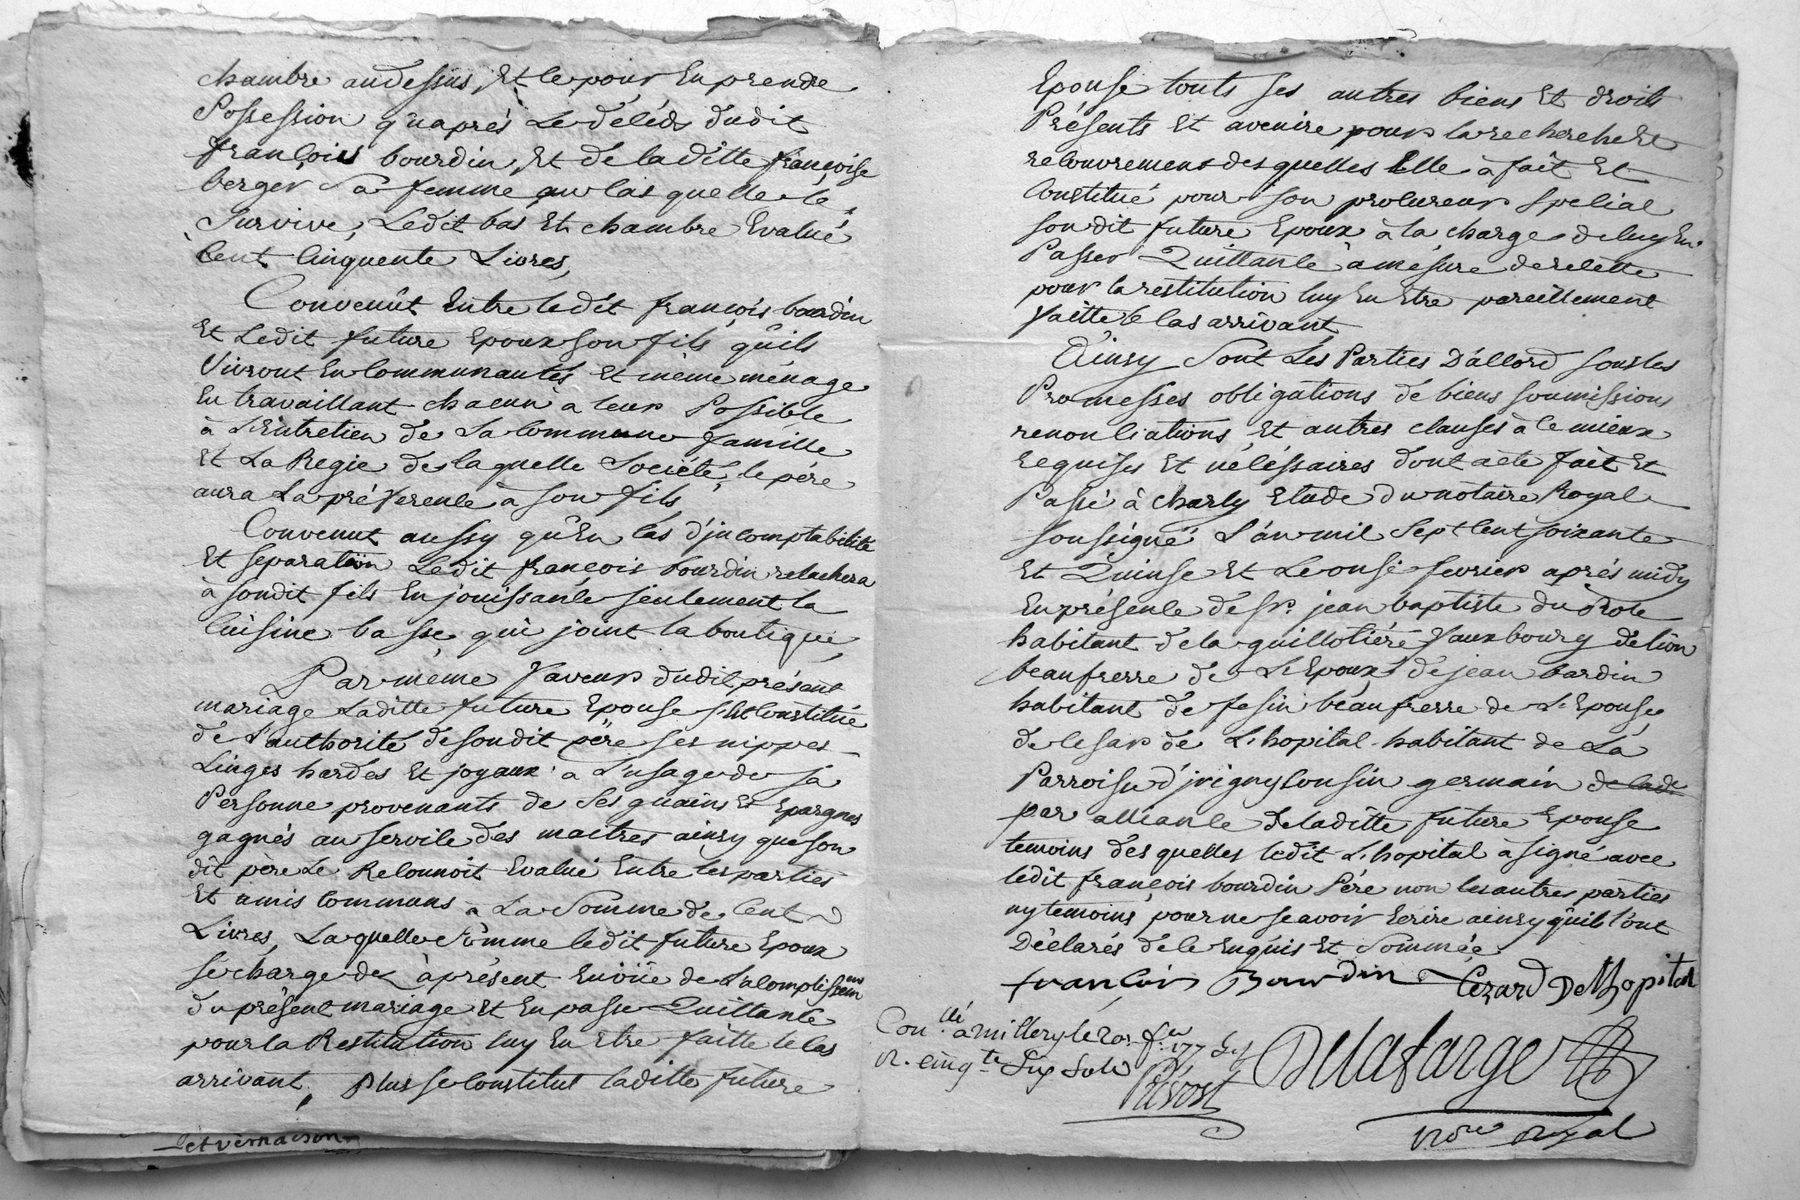 chambre audessus, Et le pour En prendre
Possession qu'aprés Le décéds dudit
françois bourdin, Et de laditte françoise
berger Sa femme au cas quelle le
Survive, Ledit bas Et chambre Evalué
Cent Cinquente Livres,
Convenût Entre ledit françois bourdin
Et Ledit future Epoux son fils qûils
Vivront En Communautés et même ménage
En travaillant chacun à leur Possible
à L'Entretien de La Commune famille
Et La Regie de laquelle Société, le pére
aura La préference à son fils
Convenut aussy qu'En Cas d'jncomptabilité
Et separation Ledit françois bourdin relachera
à sondit fils En jouissance seulement la
Cuisine basse qui joint la boutique,
Par même faveur dudit présent
mariage Laditte future Epouse S'est Constitué
de L'authorité de sondit pére ses nippes
Linges hardes Et joyaux à L'usage de sa
Personne provenants de Ses guains Et Epargnes
gagnés au Service des maitres ainsy que son
dit père Le Reconnoit Evalué Entre les parties
Et amis Communs à La Sômme de Cent
Livres, Laquelle Sômme ledit future Epoux
se charge dez àprésent En vüe de L'acomplissem.en
du présent mariage Et En passe Quittance
pour la Restitution luy En Etre faitte le Cas
arrivant, plus se Constitut laditte future
et vernaison
Epouse touts ses autres biens Et droits
Présents Et avenire pour la recherche Et
recouvrement desquelles Elle à fait Et
Constitué pour son procureur Special
sondit future Epoux à la charge de luy En
Passer Quittance à mésure de recette
pour la restitution luy En Etre pareillement
faitte le Cas arrivant
Ainsy Sont Les Parties D'accord sous les
Promesses obligations de biens soumissions
renonciations, Et autres clauses à ce mieux
requises Et nécéssaires dont acte fait Et
Passé à Charly Etude du notaire Royal
soussigné L'an mil Sept Cent soixante
Et Quinse Et Le onse fevrier aprés midy
En présence de sr. jean baptiste du
habitant de la guillotiére faux bourg de lion
beaufrerre de L'Epoux, de jean bardin
habitant de fesin beaufrerre de L'Epouse,
de Cesar de L'hopital habitant de La
Parroisse d'jrigny Cousin germain de ladt
par alliance de laditte future Epouse
temoins des quelles ledit L'hopital à signé avec
ledit françois bourdin Pére non les autres parties
ny temoins pour ne scavoir Ecrire ainsy qûils L'ont
Déclarés de ce Enquis Et Sommée
francois Bourdin Cezard De lhopital
Con.lé à millery le 20. f.er 177
R. cinq.te Six Sols
Prévost
Delafarge
nore Royal